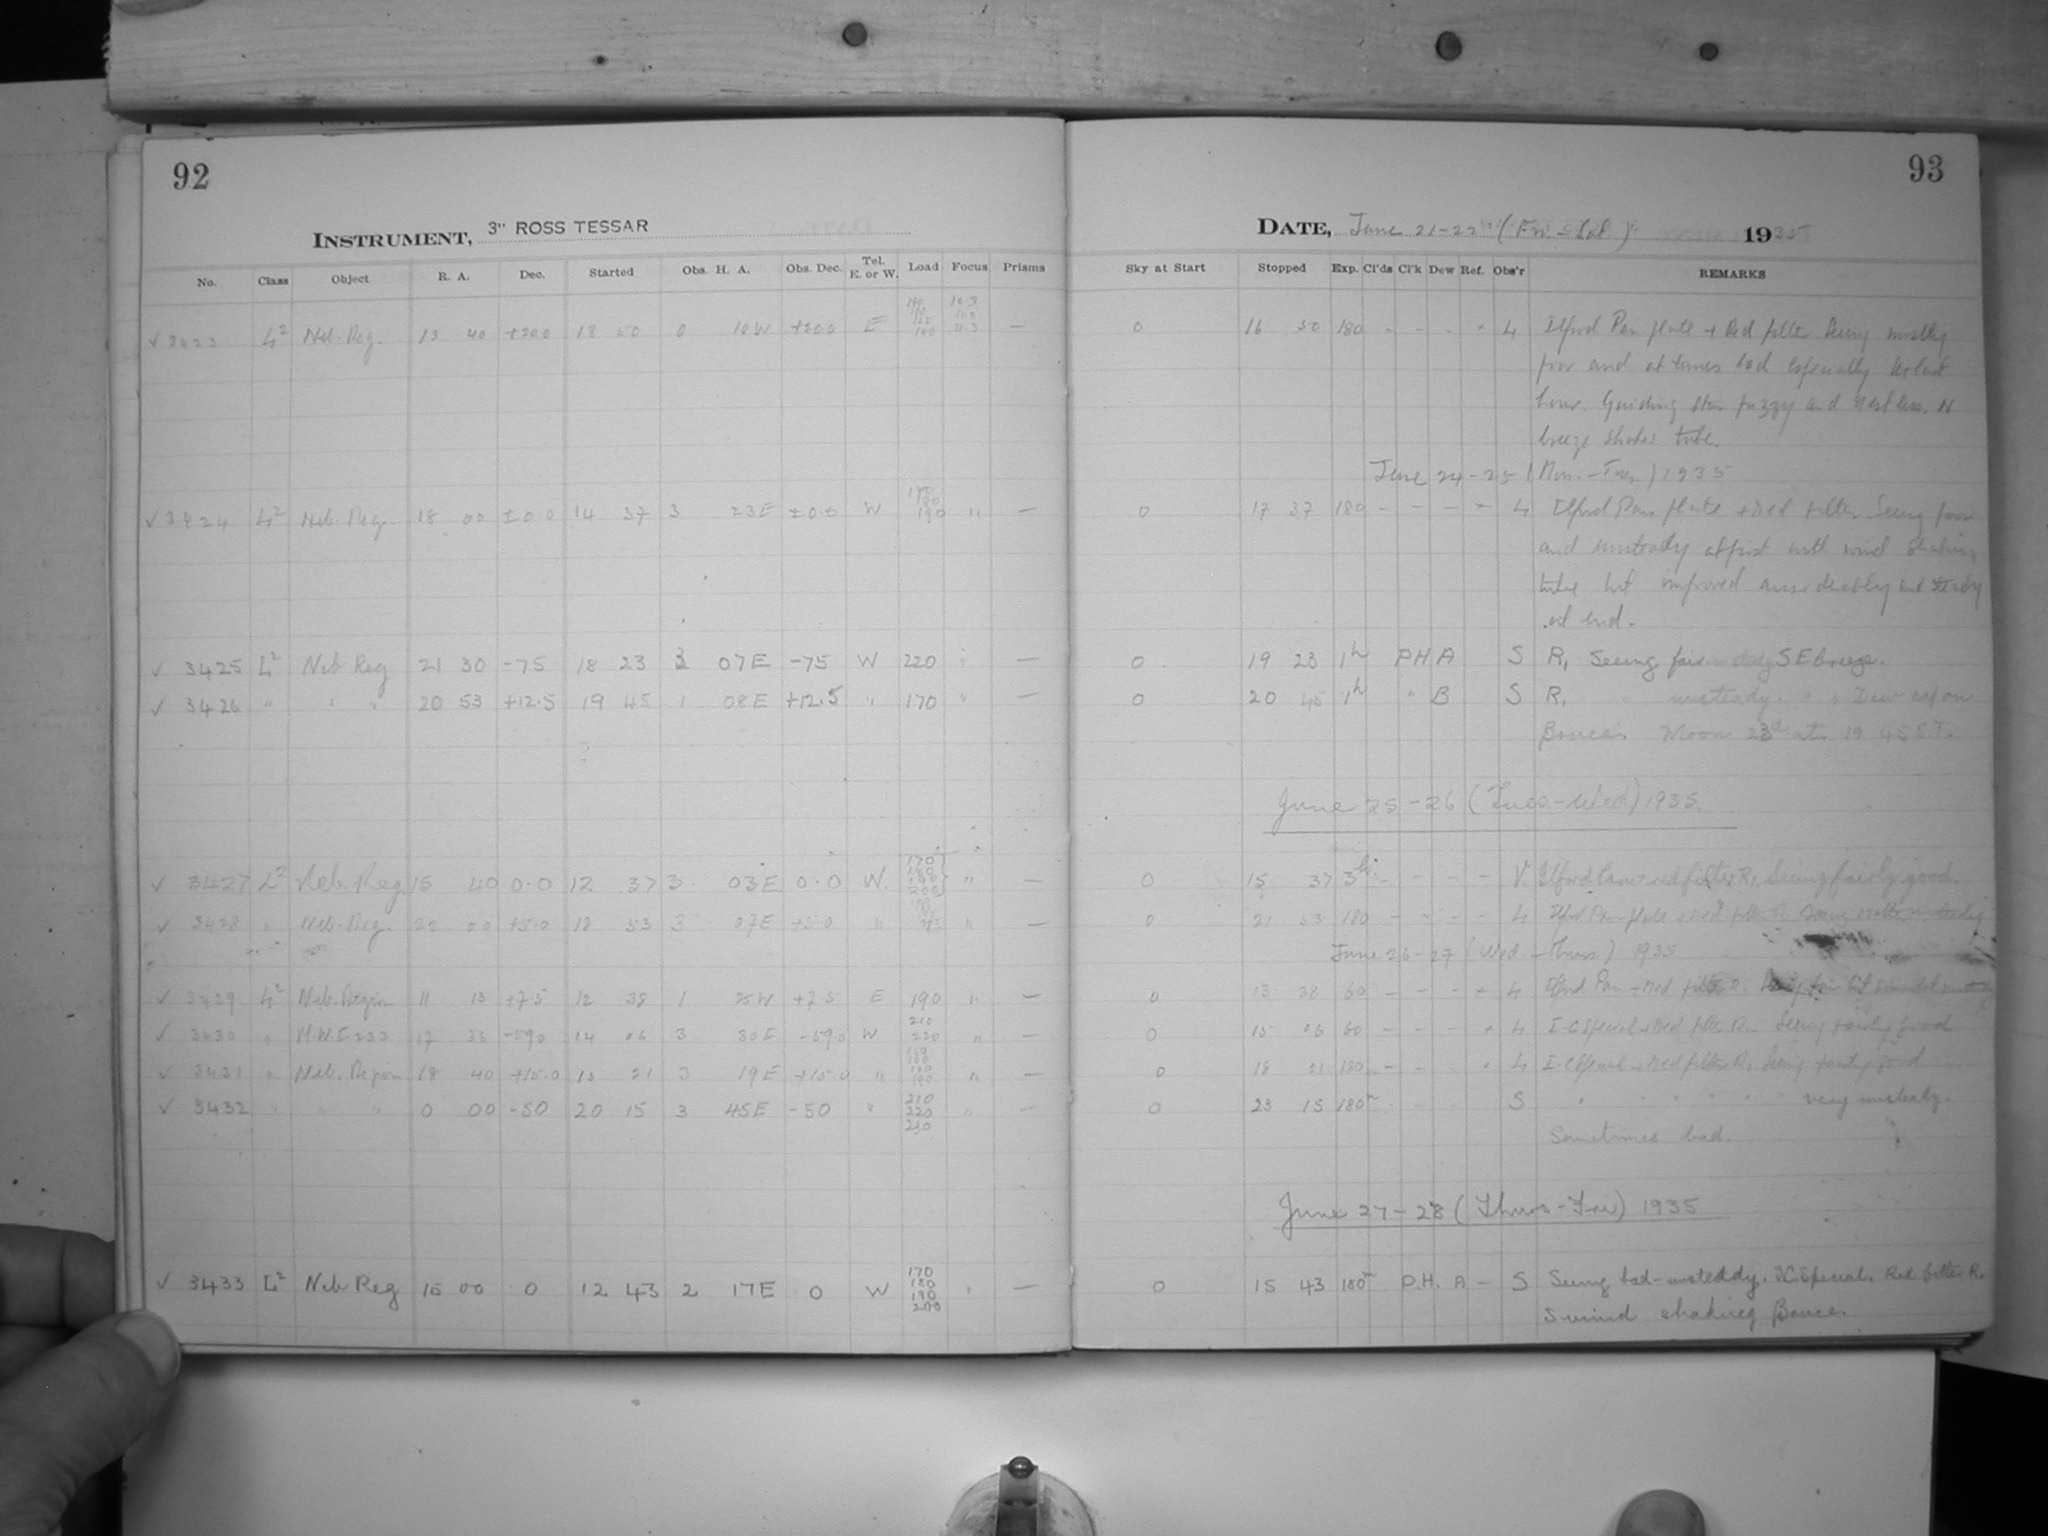 92
INSTRUMENT, 3" ROSS TESSAR
No. Class Object R. A. Dec. Started Obs. H. A. Obs. Dec. Tel. E. or W. Load Focus Prisms
✓ 3423 L² Neb. Reg. 13 40 +20.0 0 10W +20.0 E —
✓ 3424 L² Neb. Reg. 18 00 ±0.0 14 37 3 23E ±0.0 W 190 " —
✓ 3425 L² Neb Reg 21 30 -75 18 23 3 07E -75 W 220 " —
✓ 3426 " " " 20 53 +12.5 19 45 1 08E +12.5 " 170 " —
✓ 3427 L² Neb. Reg 15 40 0.0 12 37 3 03E 0.0 W. 170 180 190 200 " —
✓ 3428 " Neb. Reg. 22 00 +5.0 18 53 3 07E +5.0 " " —
✓ 3429 L² Neb. Region 11 13 +7.5 12 38 1 25W +7.5 E 190 " —
✓ 3430 " 17 35 -59.0 14 06 3 30E -59.0 W 210 220 " —
✓ 3431 " Neb. Region 18 40 +15.0 15 21 3 19E +15.0 " " —
✓ 3432 " " " 0 00 -50 20 15 3 45E -50 " 210 220 230 " —
✓ 3433 L² Neb Reg 15 00 0 12 43 2 17E 0 W 170 180 190 200 " —
93
DATE, June 21-22 (Fri - Sat) 1935
Sky at Start Stopped Exp. Cl'ds Cl'k Dew Ref. Obs'r REMARKS
0 16 50 180 - - - - L Ilford Pan plate + Red filter Seeing mostly
poor and at times bad especially
hour. Guiding star fuzzy and restless. N
breeze shakes tube.
June 24-25 (Mon. - Tues.) 1935
0 17 37 180 - - - - L Ilford Pan plate + red filter. Seeing poor
and unsteady at first with wind shaking
tube but improved considerably and steady
at end.
0 19 23 1h PH A S R, Seeing fair SE breeze.
0 20 45 1h " B S R, unsteady. " " Dew cap on
Bruce. Moon 23d at 19 45 S.T.
June 25-26 (Tues-Wed) 1935.
0 15 37 3h. - - - - V. Ilford Pan + red filter R, Seeing fairly good.
0 21 53 180 - - - - L Ilford Pan plate + Red filter R. Seeing rather unsteady
June 26-27 (Wed - Thurs.) 1935
0 13 38 60 - - - - L Ilford Pan + Red filter R.
0 15 06 60 - - - - L I-C Special + Red filter R. Seeing fairly good
0 18 21 180 - - - - L I-C Special + Red filter R, Seeing fairly good
0 23 15 180m - - - S " " " " " " very unsteady.
Sometimes bad.
June 27-28 (Thurs-Fri) 1935
0 15 43 180m P.H. A - S Seeing bad-unsteady. IC Special. Red filter R.
S wind shaking Bruce.